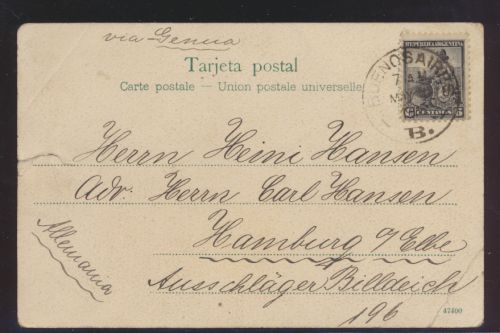 via Genua
REPUBLICA ARGENTINA
Tarjeta postal
BUENOS AIRES
Carte postale — Union postale universelle
CENTAVOS
B.
Herrn Heini Hansen
Adr. Herrn Carl Hansen
Hamburg a/Elbe
Allemania
Ausschläger Billdeich
196
47400